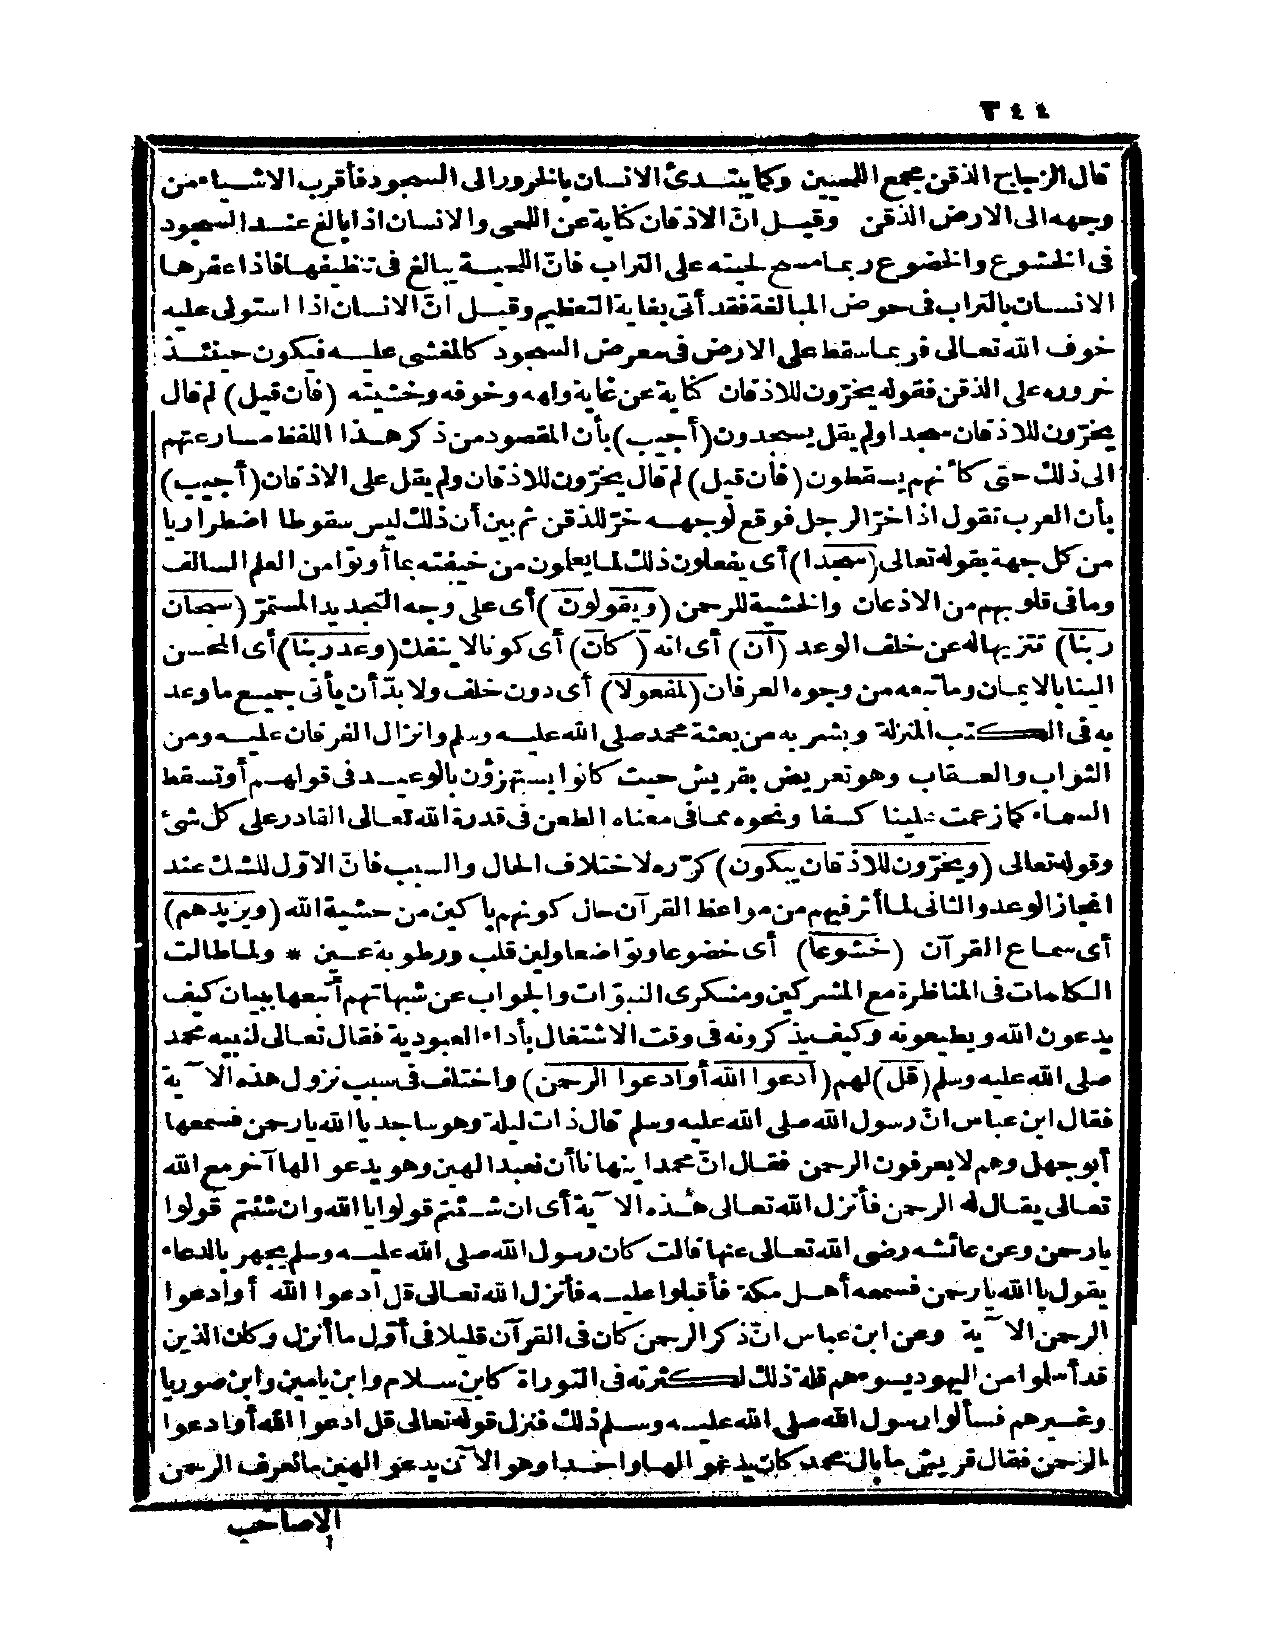 ٣٤٤
قال الزجاج الذقن مجمع اللحيين وكما يبتدئ الانسان بالخرور الى السجود فأقرب الاشياء من
وجهه الى الارض الذقن وقيل انّ الاذقان كناية عن اللحى والانسان اذا بالغ عند السجود
فى الخشوع والخضوع ربما مسح لحيته على التراب فانّ اللحية يبالغ فى تنظيفها فاذا عفرها
الانسان بالتراب فى حوض المبالغة فقد أتى بغاية التعظيم وقيل انّ الانسان اذا استولى عليه
خوف الله تعالى فربما سقط على الارض فى معرض السجود كالمغشى عليه فيكون حينئذ
خروره على الذقن فقوله يخرّون للاذقان كناية عن غاية ولهه وخوفه وخشيته (فان قيل) لم قال
يخرّون للاذقان سجدا ولم يقل يسجدون (أجيب) بأن المقصود من ذكر هذا اللفظ مسارعتهم
الى ذلك حتى كأنهم يسقطون (فان قيل) لم قال يخرّون للاذقان ولم يقل على الاذقان (أجيب)
بأن العرب تقول اذا خرّ الرجل فوقع لوجهه خرّ للذقن ثم بين أن ذلك ليس سقوطا اضطراريا
من كل جهة بقوله تعالى (سجدا) أى يفعلون ذلك لما يعلمون من خيفته بما أوتوا من العلم السالف
وما فى قلوبهم من الاذعان والخشية للرحمن (ويقولون) أى على وجه التجديد المستمرّ (سبحان
ربنا) تنزيها له عن خلف الوعد (أن) أى انه (كان) أى كونا لا ينفك (وعد ربنا) أى المحسن
الينا بالايمان وما تبعه من وجوه العرفان (لمفعولا) أى دون خلف ولا بدّ أن يأتى جميع ما وعد
به فى الكتب المنزلة وبشر به من بعثة محمد صلى الله عليه وسلم وانزال الفرقان عليه ومن
الثواب والعقاب وهو تعريض بقريش حيث كانوا يستهزؤن بالوعيد فى قولهم أو تسقط
السماء كما زعمت علينا كسفا ونحوه مما فى معناه الطعن فى قدرة الله تعالى القادر على كل شئ
وقوله تعالى (ويخرّون للاذقان يبكون) كرّره لاختلاف الحال والسبب فانّ الاوّل للشك عند
انجاز الوعد والثانى لما أثر فيهم من مواعظ القرآن حال كونهم باكين من خشية الله (ويزيدهم)
أى سماع القرآن (خشوعا) أى خضوعا وتواضعا ولين قلب ورطوبة عين * ولما طالت
الكلمات فى المناظرة مع المشركين ومنكرى النبوّات والجواب عن شبهاتهم أتبعها ببيان كيف
يدعون الله ويطيعونه وكيف يذكرونه فى وقت الاشتغال بأداء العبودية فقال تعالى لنبيه محمد
صلى الله عليه وسلم (قل) لهم (ادعوا الله أو ادعوا الرحمن) واختلف فى سبب نزول هذه الآية
فقال ابن عباس انّ رسول الله صلى الله عليه وسلم قال ذات ليلة وهو ساجد يا الله يا رحمن فسمعها
أبو جهل وهم لا يعرفون الرحمن فقال انّ محمدا ينهانا أن نعبد الهين وهو يدعو الها آخر مع الله
تعالى يقال له الرحمن فأنزل الله تعالى هذه الآية أى ان شئتم قولوا يا الله وان شئتم قولوا
يا رحمن وعن عائشة رضى الله تعالى عنها قالت كان رسول الله صلى الله عليه وسلم يجهر بالدعاء
يقول يا الله يا رحمن فسمعه أهل مكة فأقبلوا عليه فأنزل الله تعالى قل ادعوا الله أو ادعوا
الرحمن الآية وعن ابن عباس انّ ذكر الرحمن كان فى القرآن قليلا فى أوّل ما أنزل وكان الذين
قد أسلموا من اليهود يسوءهم قلة ذلك لكثرته فى التوراة كابن سلام وابن يامين وابن صوريا
وغيرهم فسألوا رسول الله صلى الله عليه وسلم ذلك فنزل قوله تعالى قل ادعوا الله أو ادعوا
الرحمن فقال قريش ما بال محمد كان يدعو الها واحدا وهو الآن يدعو الهين ما نعرف الرحمن
الا صاحب